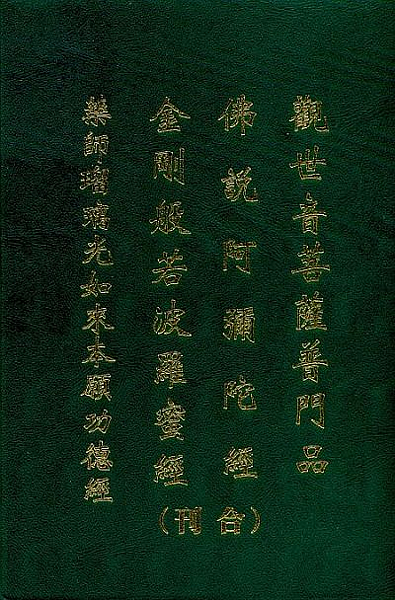 觀世音菩薩普門品
佛說阿彌陀經
金剛般若波羅蜜經
藥師瑠璃光如來本願功德經
（台刊）